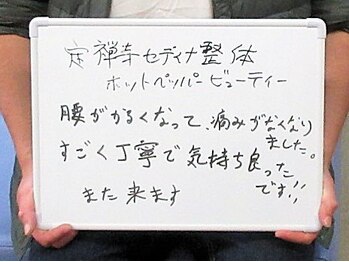 定禅寺セディナ整体
ホットペッパービューティー
腰がかるくなって、痛みがなくなり
ました。
すごく丁寧で気持ち良った
です!!
また来ます